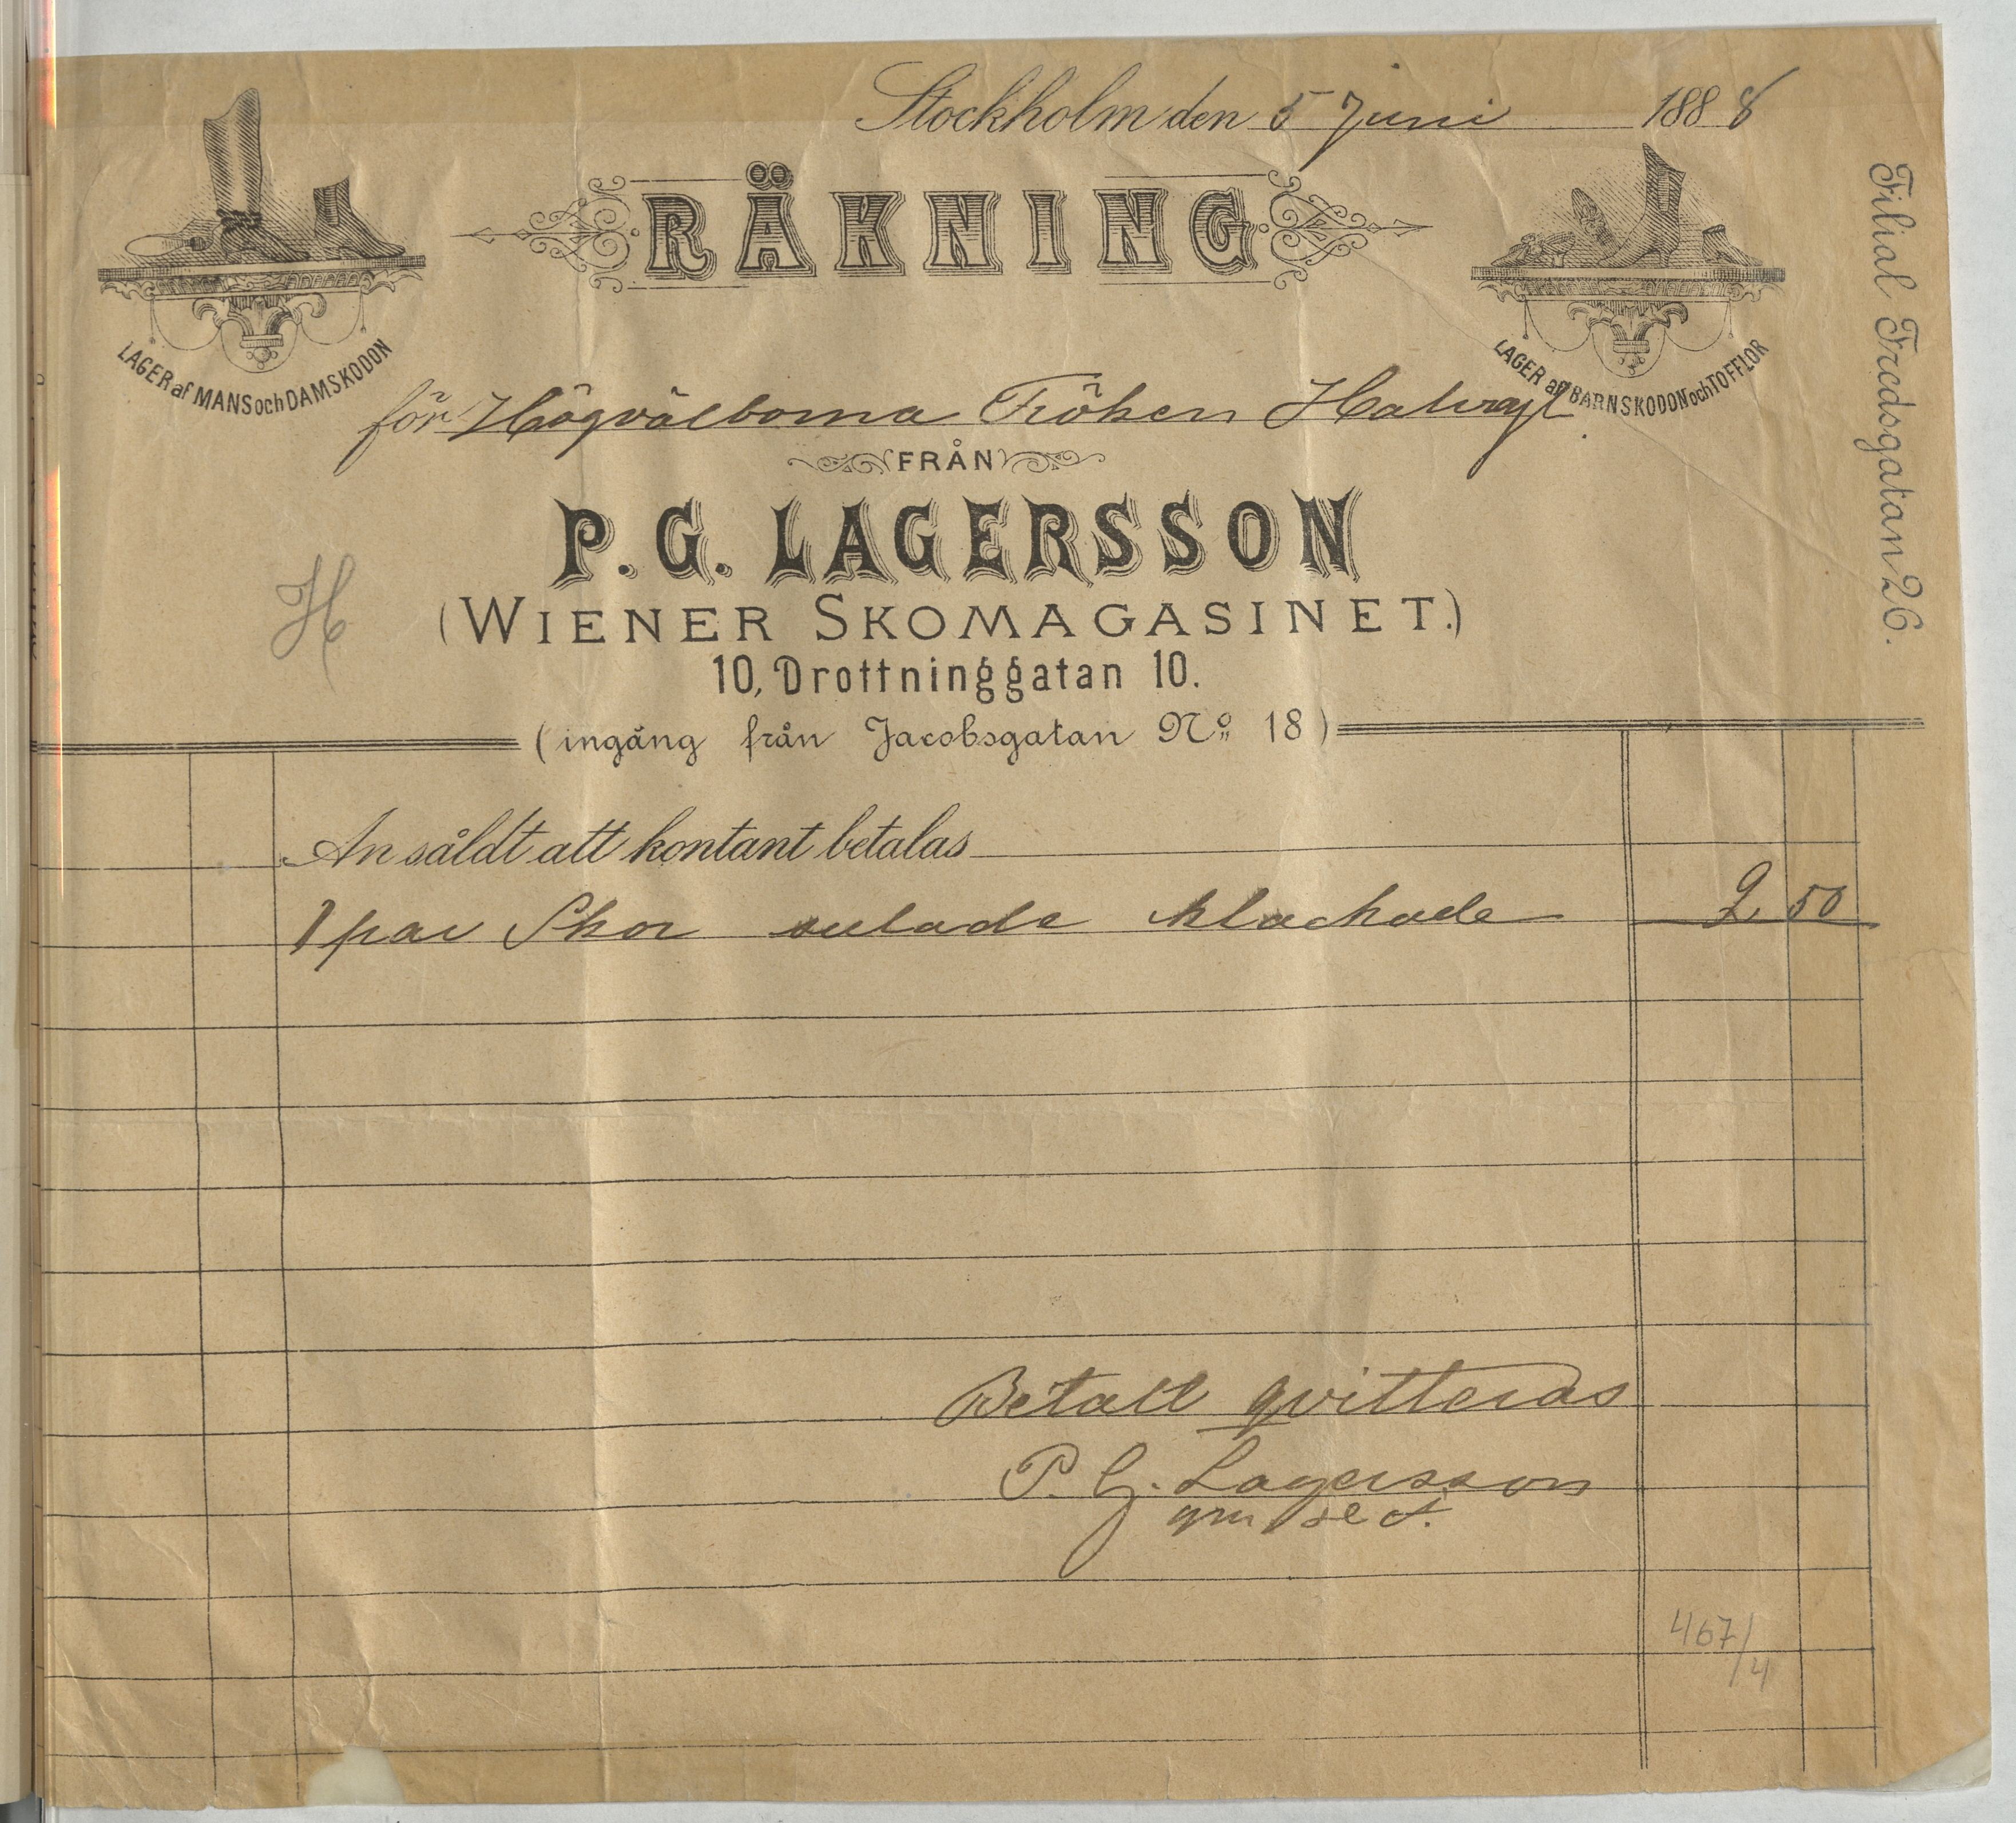 Stockholm den 5 Juni 1888
RÄKNING
LAGER af MANS och DAMSKODON
LAGER af BARNSKODON och TOFFLOR
för Högvälborna Fröken Halwyl
FRÅN
P. G. LAGERSSON
(WIENER SKOMAGASINET.)
H
10, Drottninggatan 10.
(ingång från Jacobsgatan No 18)
Filial Fredsgatan 26.
An såldt att kontant betalas
1 par Skor sulade klackade 2,50
Betalt qvitteras
P. G. Lagersson
467/4